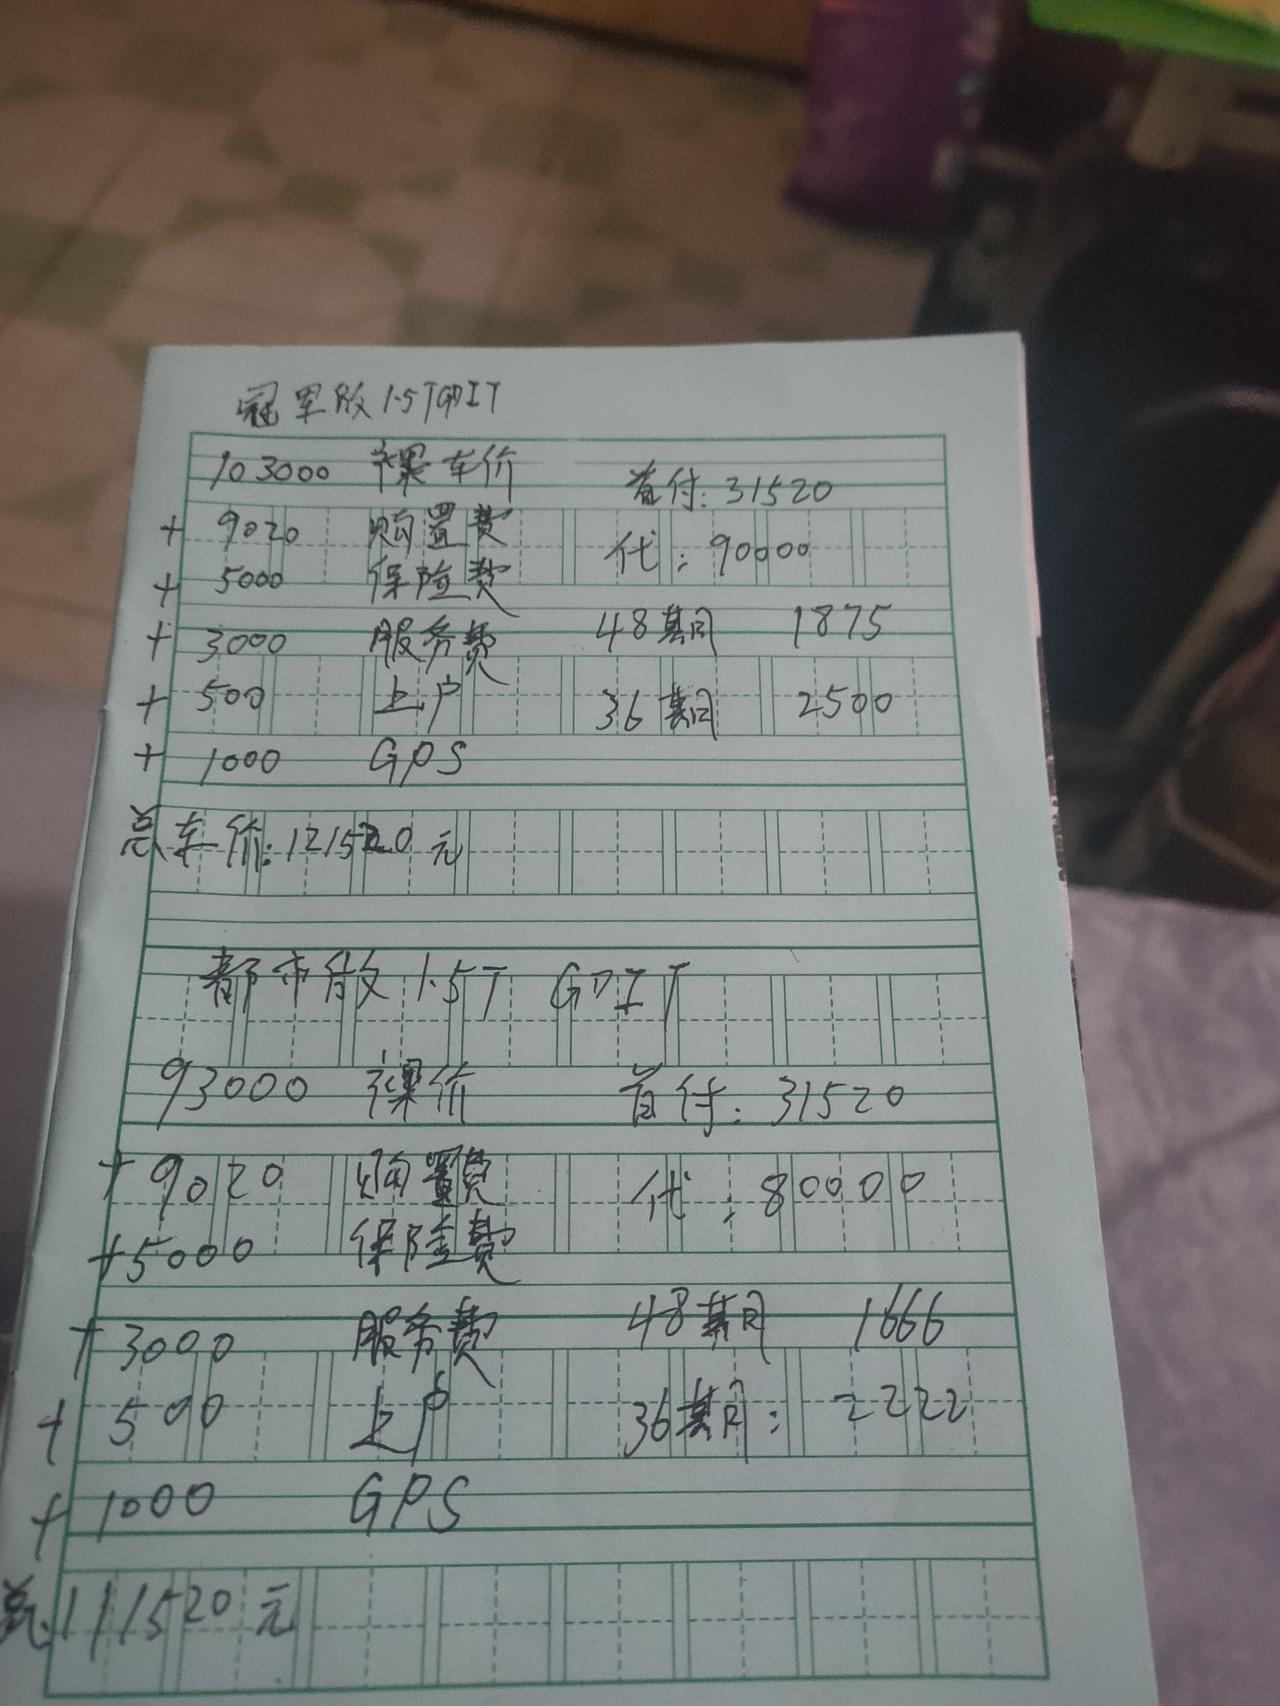 冠军版 1.5TGDIT
103000 裸车价 首付:31520
+ 9020 购置费 代:90000
+ 5000 保险费
+ 3000 服务费 48期 1875
+ 500 上户 36期 2500
+ 1000 GPS
总车价:121520元
都市版 1.5T GDIT
93000 裸价 首付:31520
+ 9020 购置费 代:80000
+5000 保险费
+ 3000 服务费 48期 1666
+ 500 上户 36期: 2222
+ 1000 GPS
总:111520元